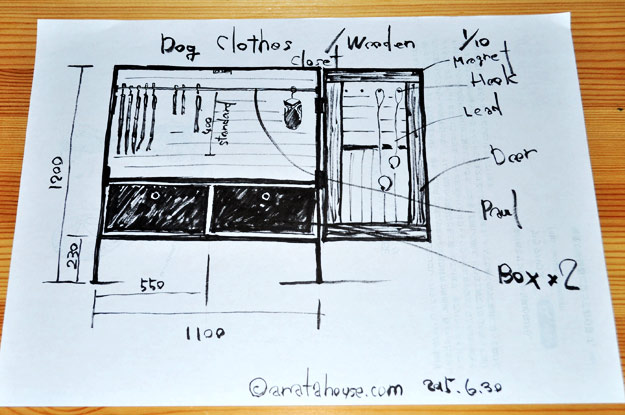 Dog Clothes / Wooden 1/10
closet
Magnet
Hook
Lead
Door
Box x 2
standard
1200
230
550
1100
©arratahouse.com 2015.6.30